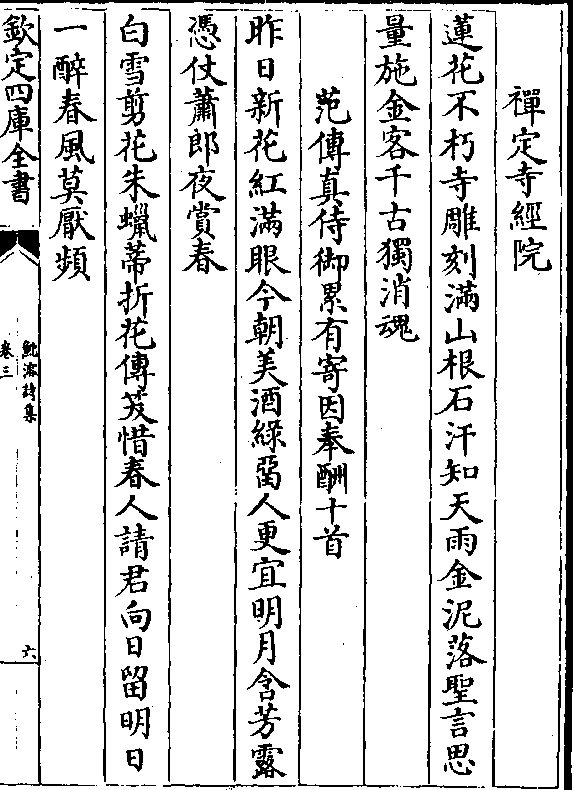 禪定寺經院
蓮花不朽寺雕刻滿山根石汗知天雨金泥落聖言思
量施金客千古獨消魂
范傳真侍御累有寄因奉酬十首
昨日新花紅滿眼今朝美酒綠留人更宜明月含芳露
憑仗蕭郎夜賞春
白雪剪花朱蠟蔕折花傳笑惜春人請君向日留明日
一醉春風莫厭頻
欽定四庫全書
鮑溶詩集
卷三
六